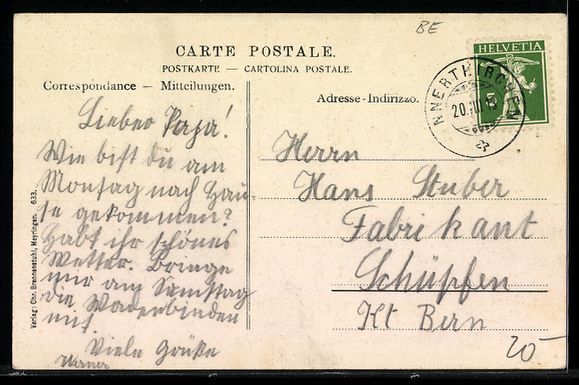 BE
CARTE POSTALE.
POSTKARTE — CARTOLINA POSTALE.
Correspondance — Mitteilungen.
Adresse-Indirizzo.
HELVETIA
5
INNERTKIRCHEN
20.III.13
Lieber Papa!
Wie bist du am
Montag nach Hau-
se gekommen?
Habt ihr schönes
Wetter. Bringe
mir am Samstag
die Wadenbinden
mit.
Viele Grüße
Werner
Herrn
Hans Stuber
Fabrikant
Schüpfen
Kt Bern
20-
Verlag: Chr. Brennenstuhl, Meyringen. 633.